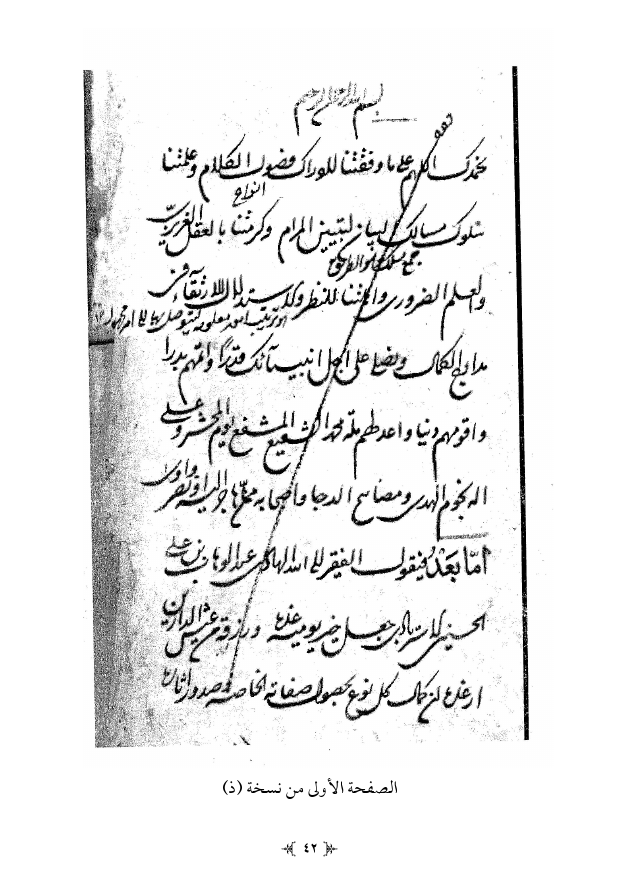 بسم الله الرحمن الرحيم
نحمدك اللهم على ما وفقتنا لادراك فضول الكلام وعلمتنا
سلوك مسالك البيان لتبيين المرام وكرمتنا بالعقل الغريزي
والعلم الضروري والهمتنا للنظر والاستدلال للارتقاء في
مدارج الكمال ونصلي على اجل انبيائك قدرا واتمهم بدرا
واقومهم دينا واعدلهم ملة محمد الشفيع المشفع يوم المحشر وعلى
اله نجوم الهدى ومصابيح الدجا واصحابه
اما بعد فيقول الفقير الى الله الهادي عبد الوهاب بن علي
الحسيني الاسترابادي جعل خير يوميه غده ورزقه عيش الدارين
ارغده ان كمال كل نوع بحصول صفاته الخاصة وصدور اثاره
الصفحة الأولى من نسخة (ذ)
٤٢